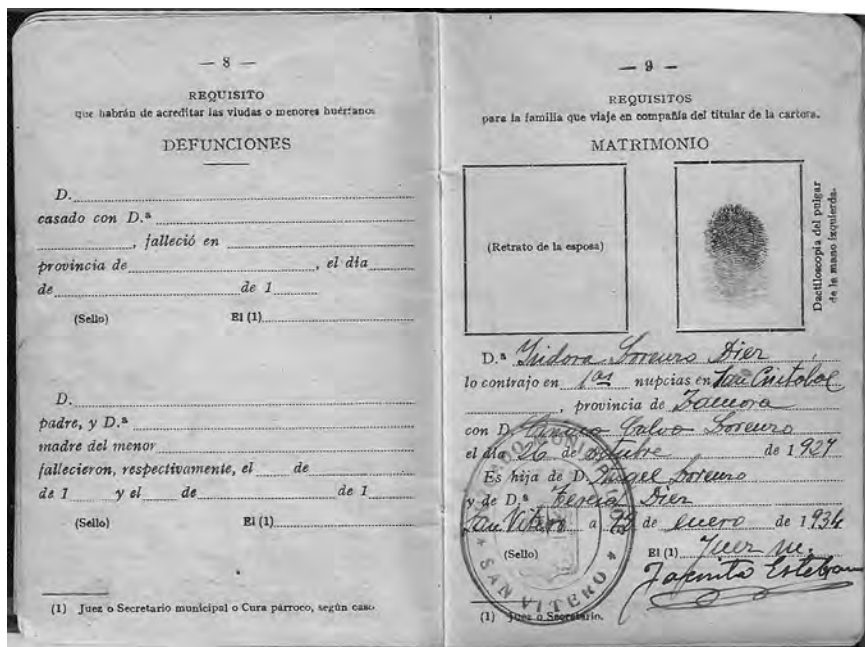 — 8 —
REQUISITO
que habrán de acreditar las viudas o menores huérfanos
DEFUNCIONES
D.
casado con D.ª
, falleció en
provincia de , el día
de de 1
(Sello) El (1)
D.
padre, y D.ª
madre del menor
fallecieron, respectivamente, el de
de 1 y el de de 1
(Sello) El (1)
(1) Juez o Secretario municipal o Cura párroco, según caso.
— 9 —
REQUISITOS
para la familia que viaje en compañía del titular de la cartera.
MATRIMONIO
(Retrato de la esposa)
Dactiloscopia del pulgar
de la mano izquierda.
D.ª Isidora Lorenzo Dier
lo contrajo en 1as nupcias en San Cristobal
, provincia de Zamora
con D. Calvo Lorenzo
el día 26 de octubre de 1927
Es hija de D. Angel Lorenzo
y de D.ª Teresa Dier
San Vitero a de enero de 1934
(Sello) El (1) Juez m.
Jacinto Esteban
SAN VITERO
(1) Juez o Secretario.